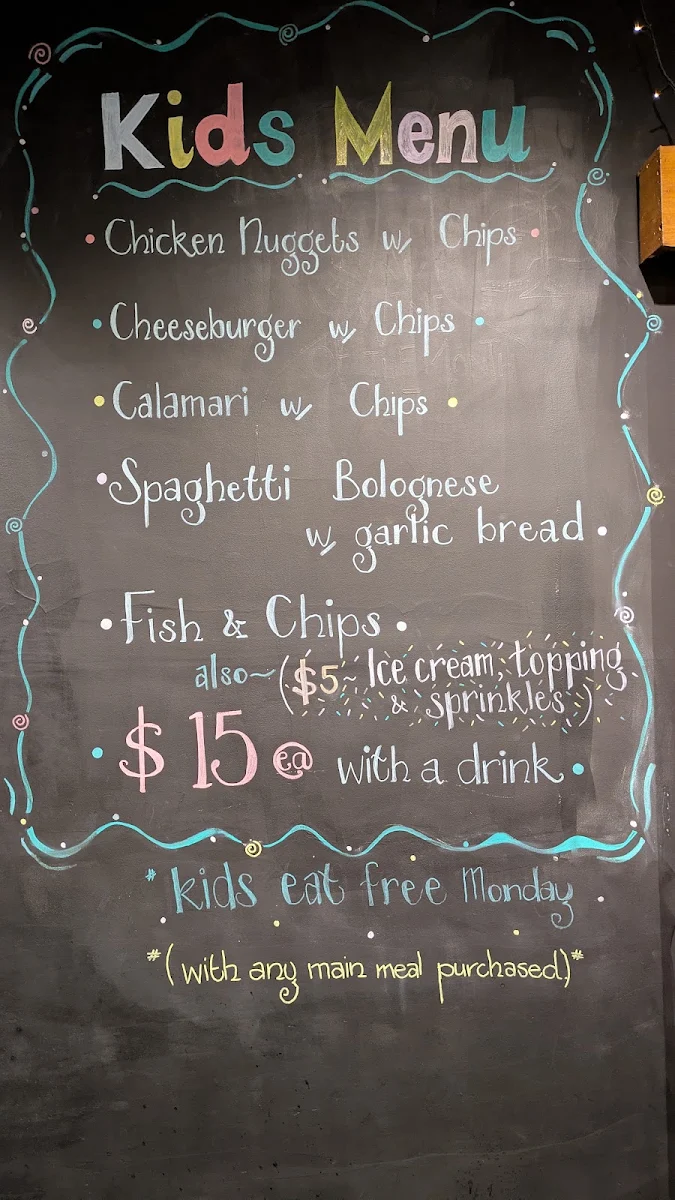 Kids Menu
• Chicken Nuggets w/ Chips •
• Cheeseburger w/ Chips •
• Calamari w/ Chips •
• Spaghetti Bolognese
w/ garlic bread •
• Fish & Chips •
also~ ($5~ Ice cream, topping
& sprinkles)
• $15 ea with a drink •
* kids eat free Monday
*(with any main meal purchased)*